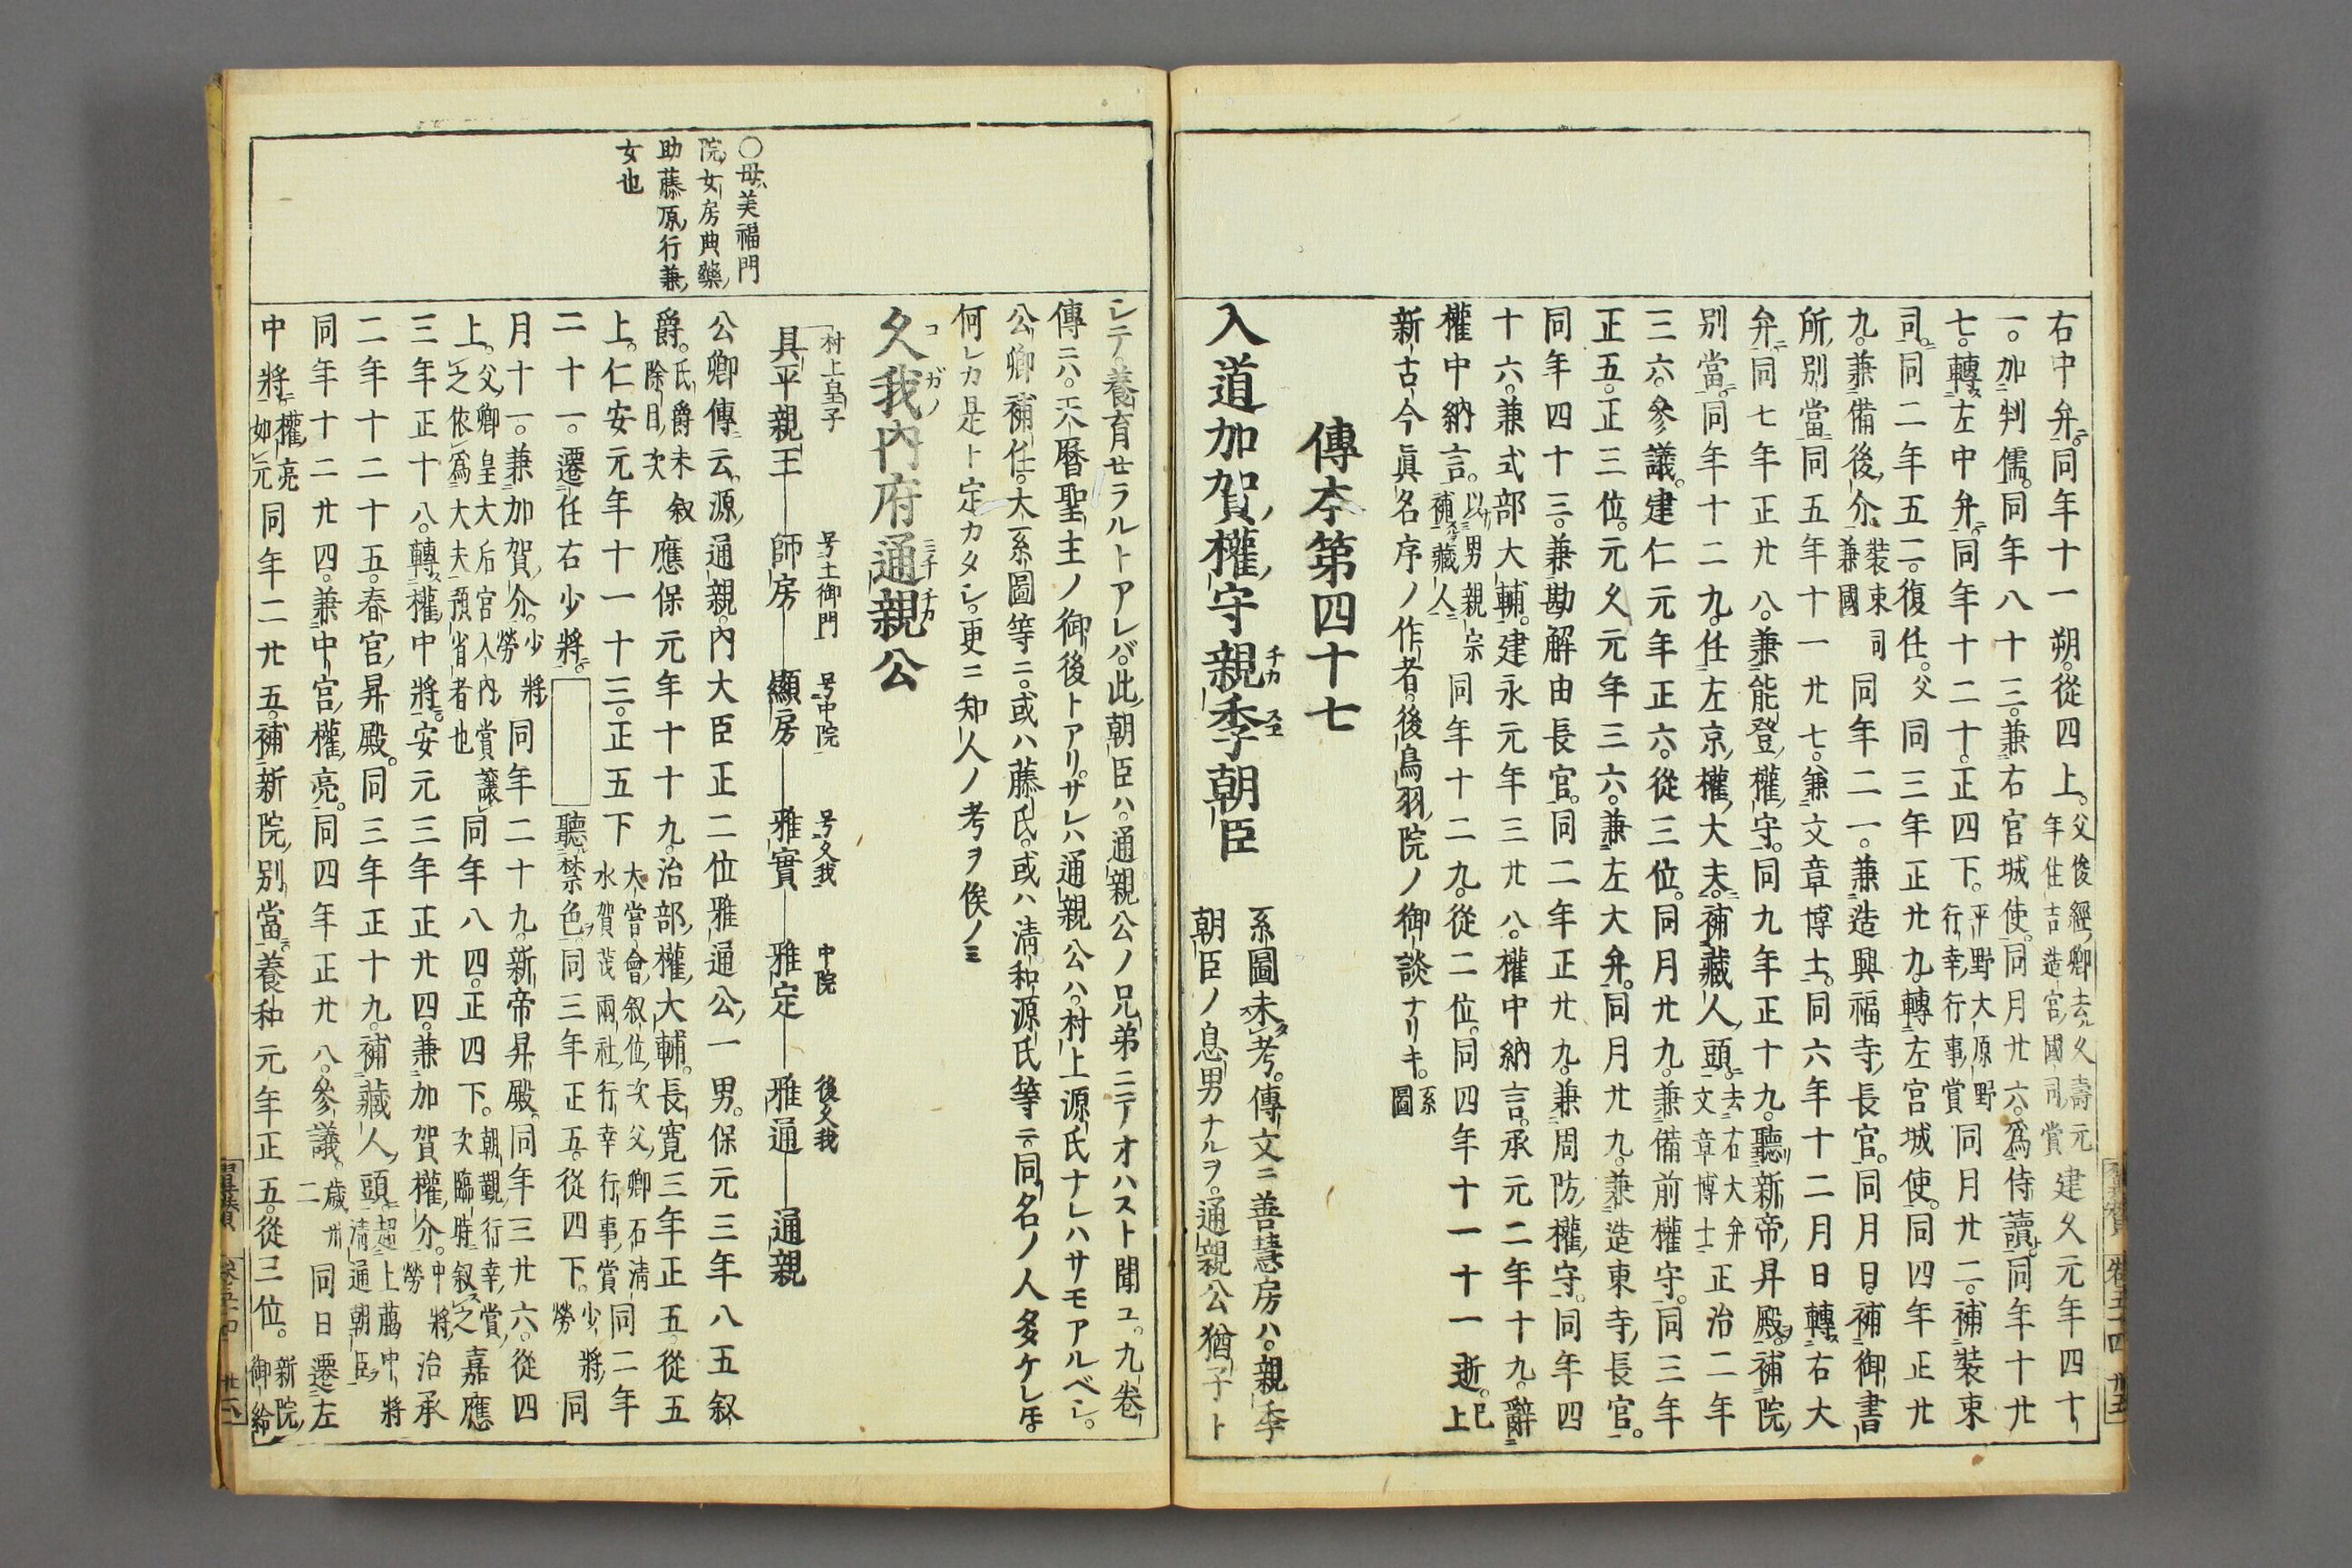 右中弁。同年十一朔。從四上。父俊經卿去久壽元年住吉造宮國司賞建久元年四十
一。加判儒。同年八十三。兼右宮城使。同月廿六。爲侍讀。同年十廿
七。轉左中弁。同年十二十。正四下。平野大原野行幸行事賞同月廿二。補装束
司。同二年五二。復任。父同三年正廿九。轉左宮城使。同四年正廿
九。兼備後介。装束司兼國同年二一。兼造興福寺長官。同月日。補御書
所別當。同五年十一廿七。兼文章博士。同六年十二月日轉右大
弁。同七年正廿八。兼能登權守。同九年正十九。聽新帝昇殿。補院
別當。同年十二九。任左京權大夫。補藏人頭。去右大弁文章博士正治二年
三六。參議。建仁元年正六。從三位。同月廿九。兼備前權守。同三年
正五。正三位。元久元年三六。兼左大弁。同月廿九。兼造東寺長官。
同年四十三。兼勘解由長官。同二年正廿九。兼周防權守。同年四
十六。兼式部大輔。建永元年三廿八。權中納言。承元二年十九。辭
權中納言。以男親宗補藏人同年十二九。從二位。同四年十一十一逝。已上
新古今眞名序ノ作者。後鳥羽院ノ御談ナリキ。系圖
傳本第四十七
入道加賀權守親季朝臣 チカ スエ
系圖未考。傳文ニ善慧房ハ。親季
朝臣ノ息男ナルヲ。通親公猶子ト
シテ。養育セラルトアレバ。此朝臣ハ。通親公ノ兄弟ニテオハスト聞ユ。九卷
傳ニハ。天曆聖主ノ御後トアリ。サレハ通親公ハ。村上源氏ナレハサモアルベシ。
公卿補任。大系圖等ニ。或ハ藤氏。或ハ清和源氏等ニ。同名ノ人多ケレ𪜈。
何レカ是ト定カタシ。更ニ知人ノ考ヲ俟ノミ
久我內府通親公 コガノ ミチチカ
村上皇子 具平親王 号土御門 師房 号中院 顯房 号久我 雅實 中院 雅定 後久我 雅通 通親
○母美福門
院女房典藥
助藤原行兼
女也
公卿傳云。源通親。內大臣正二位雅通公一男。保元三年八五叙
爵。氏爵未叙除目次應保元年十十九。治部權大輔。長寬三年正五從五
上。仁安元年十一十三。正五下大嘗會叙位次父卿石清水賀茂兩社行幸行事賞同二年
二十一。遷任右少將。聽禁色。同三年正五。從四下。少將勞同
月十一。兼加賀介。少將勞同年二十九。新帝昇殿。同年三廿六。從四
上。父卿皇大后宮入內賞讓之依爲大夫預省者也同年八四。正四下。朝覲行幸賞次臨時叙之嘉應
三年正十八。轉權中將。安元三年正廿四。兼加賀權介。中將勞治承
二年十二十五。春宮昇殿。同三年正十九。補藏人頭。超上﨟中將清通朝臣
同年十二廿四。兼中宮權亮。同四年正廿八。參議。歲卅二同日遷左
中將。權亮如元同年二廿五。補新院別當。養和元年正五。從三位。新院御給